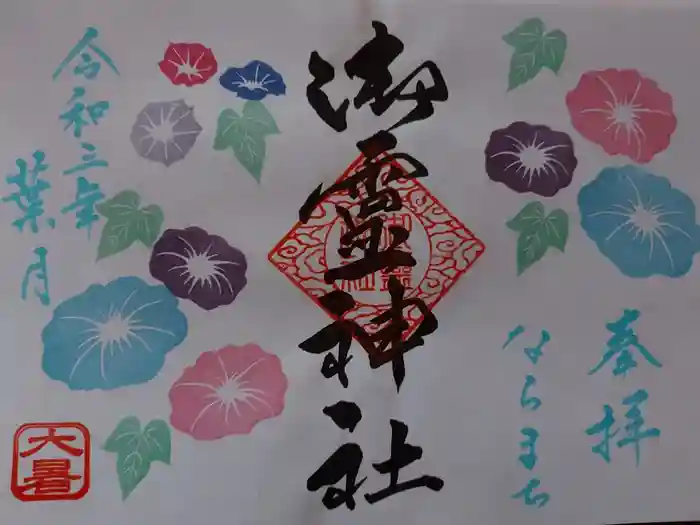 奉拝
ならまち
御霊神社
令和三年
葉月
大暑